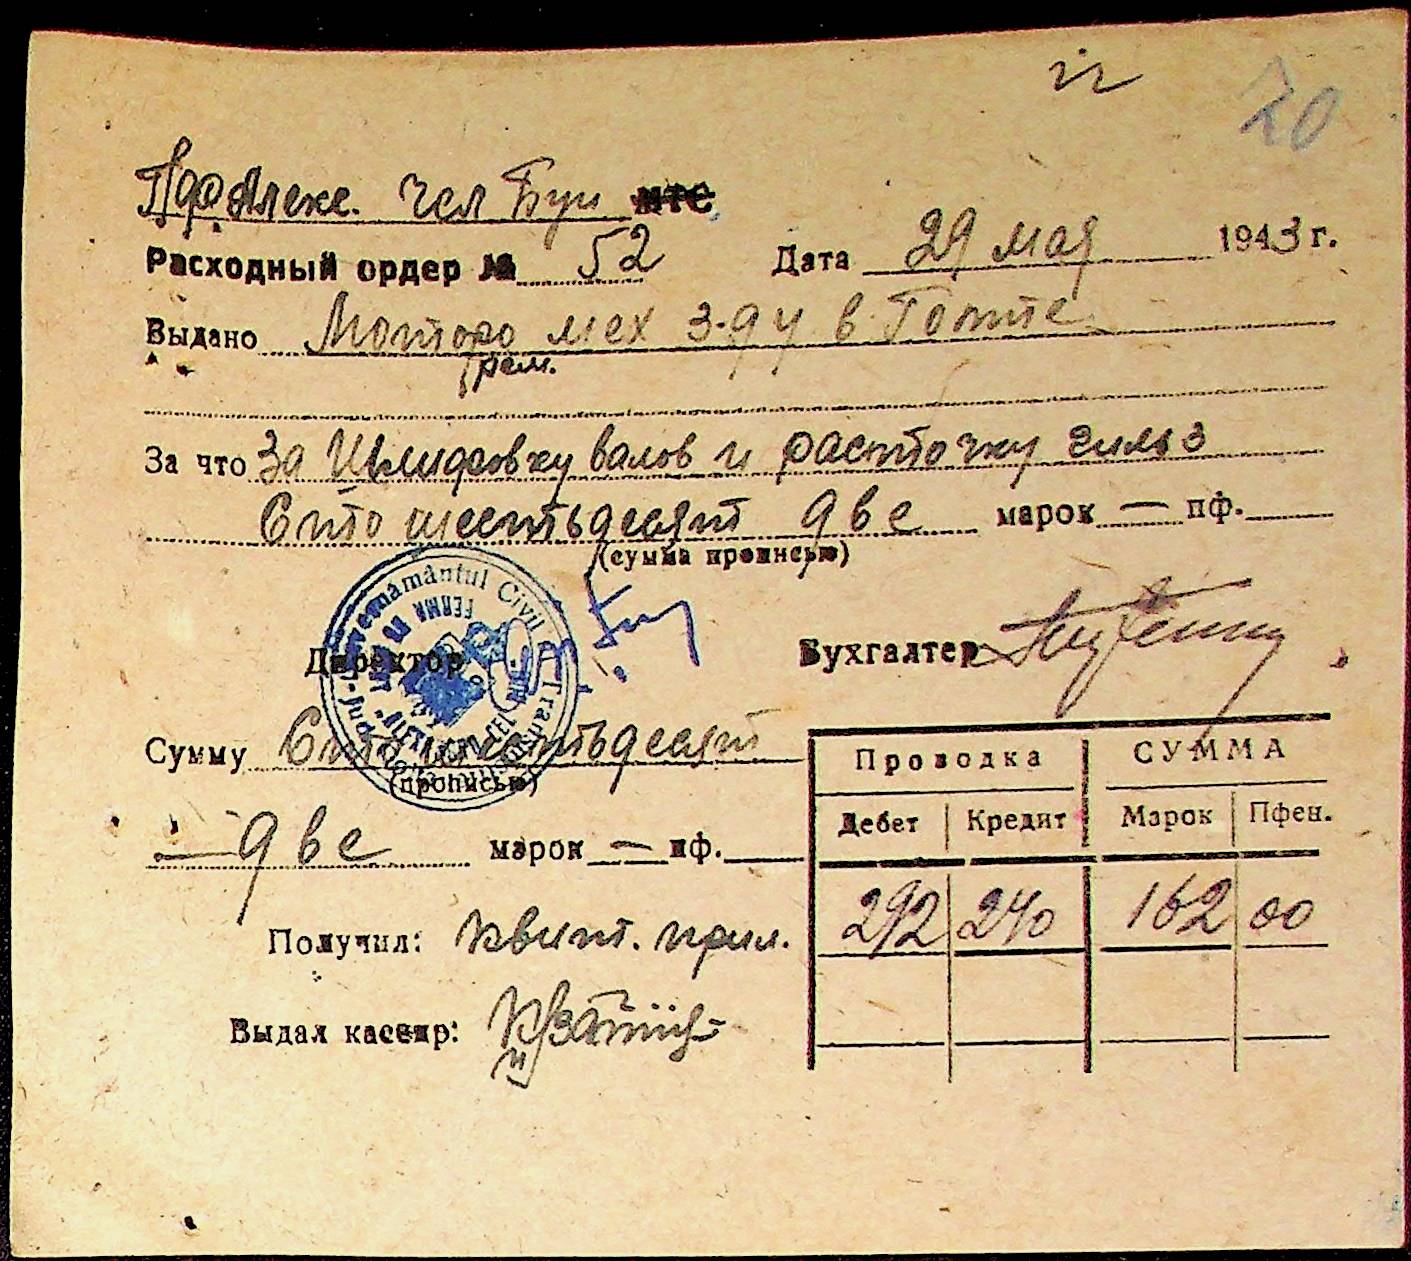 20
Алекс. Чел Буи МТС
Расходный ордер № 52 Дата 29 мая 1943 г.
Выдано Моторо мех з-ду в Готте
рем.
За что За Шлифовку валов и расточку гильз
Сто шестьдесят две марок — пф.
(сумма прописью)
Guvernământul Civil Tran
FERMA
Директор Бухгалтер
Сумму Сто шестьдесят
(прописью)
— две марок — пф.
Проводка СУММА
Дебет Кредит Марок Пфен.
292 240 162 00
Получил: Квит. прил.
Выдал кассир: